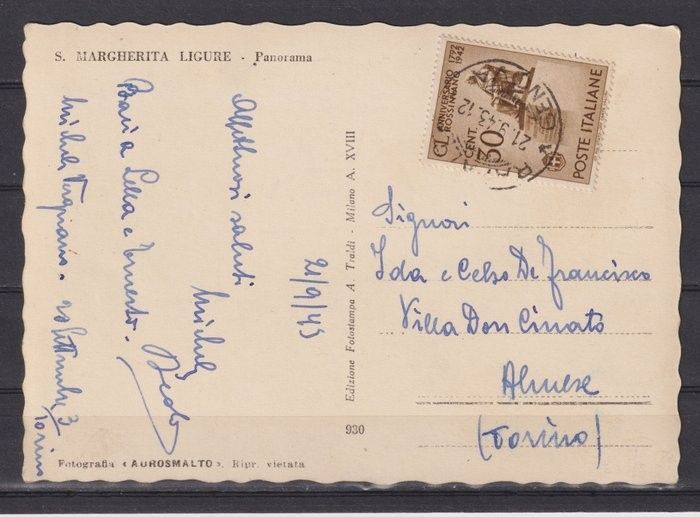 S. MARGHERITA LIGURE - Panorama
Affettuosi saluti
Michele
21/9/43
Baci a Lella e Ernesto.
Michele
Torino
Edizione Fotostampa A. Traldi - Milano A. XVIII
930
Fotografia «AUROSMALTO». Ripr. vietata
CL ANNIVERSARIO 1792
ROSSINIANO 1942
CENT. 30
POSTE ITALIANE
21.9.43.12
Signori
Ida e Celso De Francisco
Villa Don Cinato
Almese
(Torino)